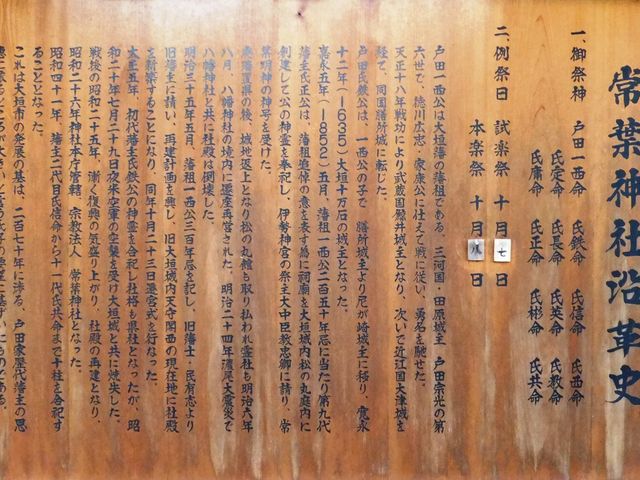 常葉神社沿革史
一、御祭神 戸田一西命 氏鉄命 氏信命 氏西命
氏定命 氏長命 氏英命 氏教命
氏庸命 氏正命 氏彬命 氏共命
二、例祭日 試楽祭 十月七日
本楽祭 十月八日
戸田一西公は大垣藩の藩祖である、三河国・田原城主 戸田宗光の第
六世で、徳川広忠・家康公に仕えて戦に従い、勇名を馳せた。
天正十八年戦功により武蔵国鯨井城主となり、次いで近江国大津城を
経て、同国膳所城に転じた。
戸田氏鉄公は、一西公の子で 膳所城主より尼が崎城主に移り、寛永
十二年(1635)大垣十万石の城主となった。
嘉永五年(1852)五月、藩祖一西公二百五十年忌に当たり第九代
藩主氏正公は、藩祖追悼の意を表す為に祠廟を大垣城内松の丸庭内に
創建して公の神霊を奉祀し、伊勢神宮の祭主大中臣教忠卿に請り、常
葉明神の神号を受けた。
廃藩置県の後、城地返上となり松の丸館も取り払われ霊社も明治六年
八月、八幡神社の境内に遷座再営された、明治二十四年濃尾大震災で
八幡神社と共に社殿は倒壊した。
明治三十五年五月、藩祖一西公三百年忌を記し、旧藩士、民有志より
旧藩主に請い、再建計画を興し、旧大垣城内天守閣西の現在地に社殿
を新築することになり、同年十月二十三日遷宮式を行なった。
大正五年、初代藩主氏鉄公の神霊を合祀し社格も県社となったが、昭
和二十年七月二十九日夜米空軍の空襲を受け大垣城と共に焼失した。
戦後の昭和二十五年、漸く復興の気盛り上がり、社殿の再建となり、
昭和二十六年神社本庁管轄 宗教法人 常葉神社となった。
昭和四十一年、藩主二代目氏信命から十一代氏共命まで十柱を合祀す
ることとなった。
これは大垣市の発展の基は、二百七十年に渉る、戸田家歴代藩主の恩